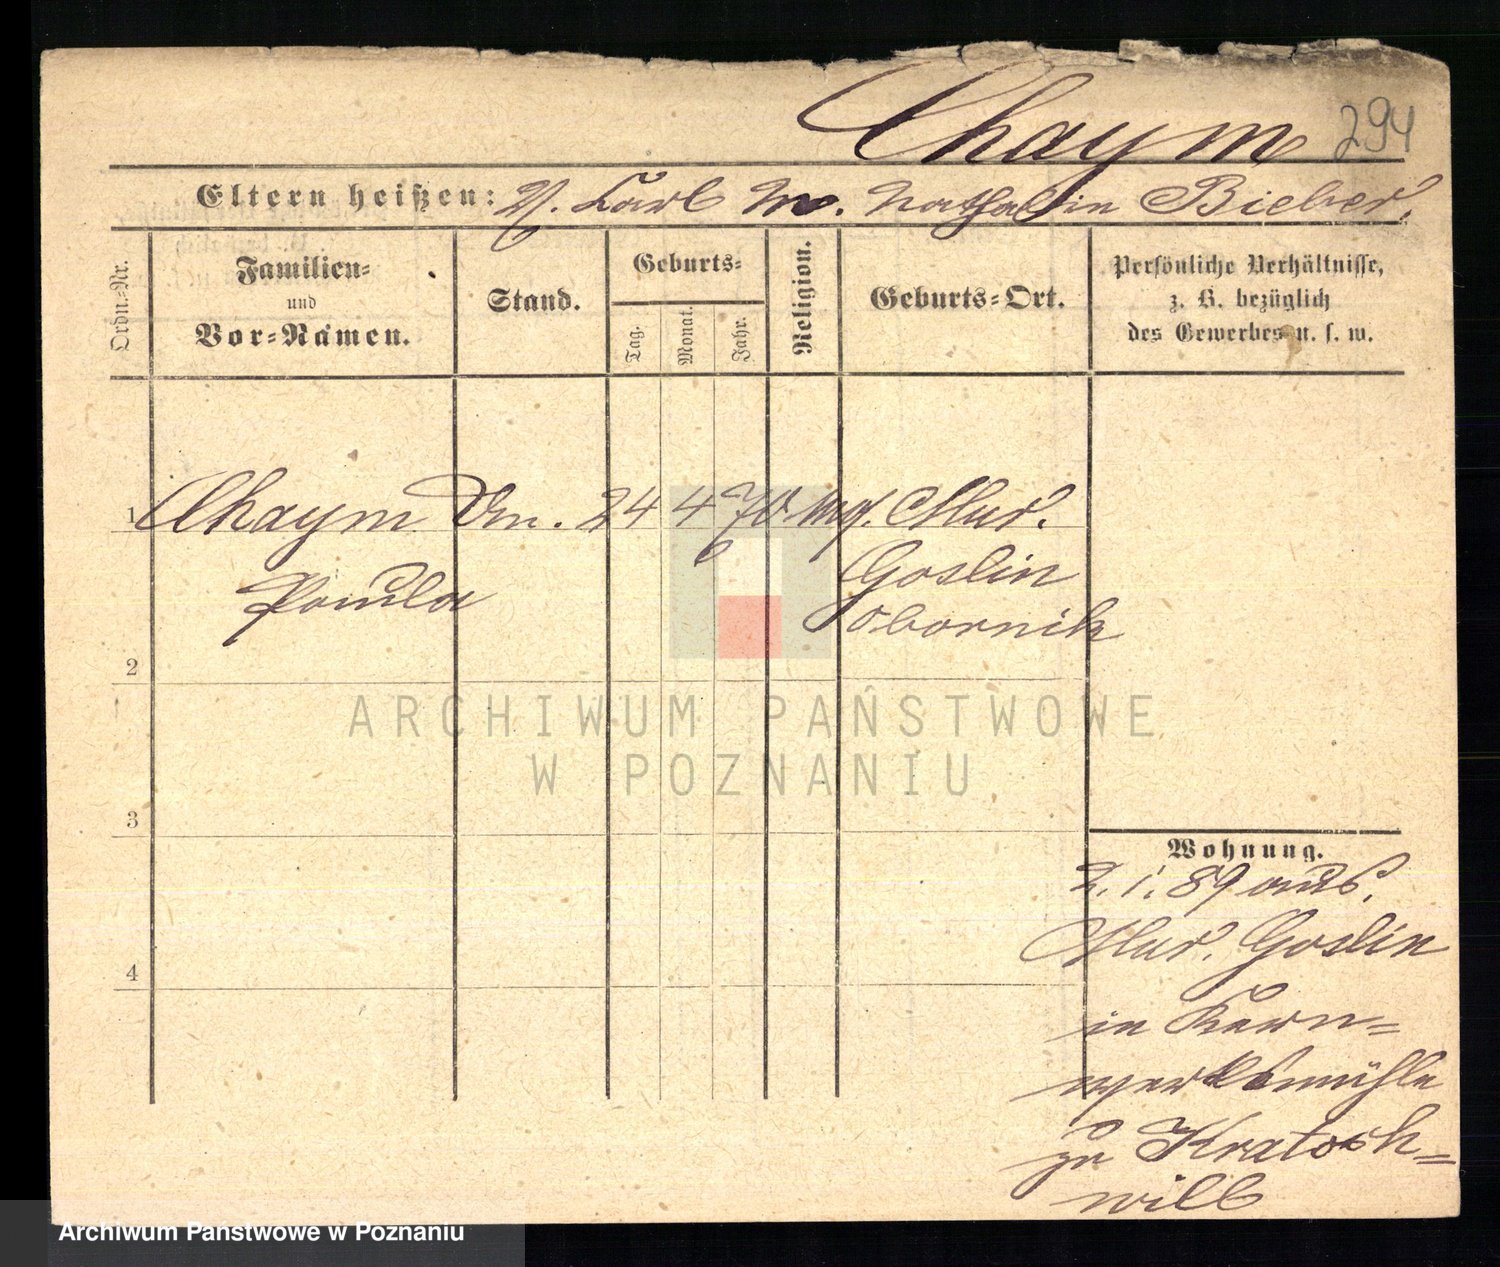 Chaym 294
Eltern heißen: V. Karl M. Nathalin Bieber.
Ordn.-Nr.
Familien-
und
Vor-Namen.
Stand.
Geburts-
Tag.
Monat.
Jahr.
Religion.
Geburts-Ort.
Persönliche Verhältnisse,
z. B. bezüglich
des Gewerbes u. s. w.
1 Chaym 24 4 70 Mur.
Paula Goslin
Obornik
2
3
4
Wohnung.
2. 1. 89 aus.
Mur. Goslin
in Kern=
werksmühle
zu Kratosch=
will
ARCHIWUM PAŃSTWOWE
W POZNANIU
Archiwum Państwowe w Poznaniu